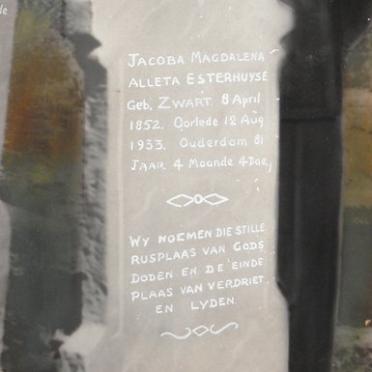 de
JACOBA MAGDALENA
ALLETA ESTERHUYSE
Geb. ZWART. 8 April
1852. Oorlede 12 Aug
1933. Ouderdom 81
JAAR 4 Maande 4 Dae,
WY NOEMEN DIE STILLE
RUSPLAAS VAN GODS
DODEN EN DE EINDE
PLAAS VAN VERDRIET
EN LYDEN.